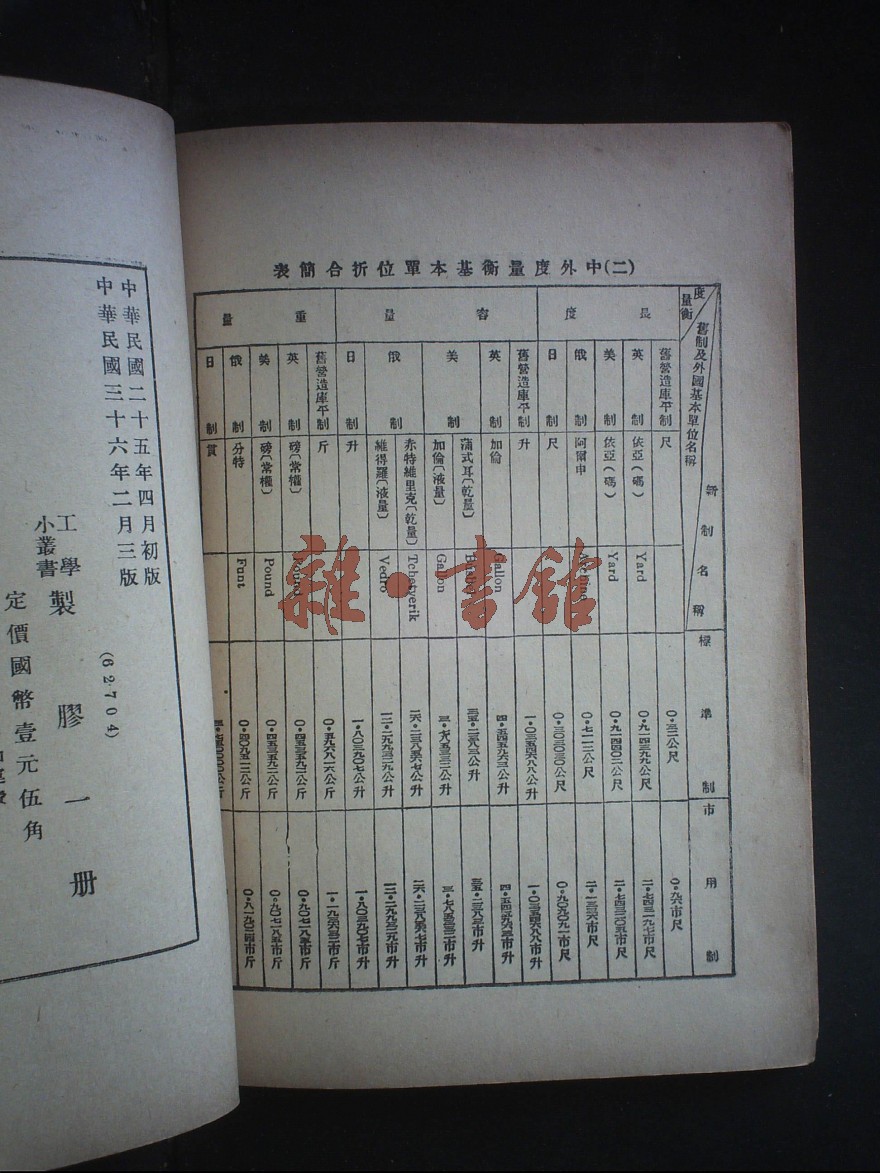 (二)中外度量衡基本單位折合簡表
度量衡
舊制及外國基本單位名稱
新制名稱
標準制
市用制
長度
舊營造庫平制 尺 〇·三二公尺 〇·九六市尺
英制 依亞(碼) Yard 〇·九一四三九九公尺 二·七四三一九七市尺
美制 依亞(碼) Yard 〇·九一四四〇二公尺 二·七四三二〇五市尺
俄制 阿爾申 〇·七一一二公尺 二·一三三六市尺
日制 尺 〇·三〇三〇三〇公尺 〇·九〇九〇九一市尺
容量
舊營造庫平制 升 一·〇三五四六八八公升 一·〇三五四六八八市升
英制 加倫 Gallon 四·五四五九六三公升 四·五四五九六三市升
美制 蒲式耳(乾量) 三五·二三八三公升 三五·二三八三市升
加倫(液量) Gallon 三·七八五三三二公升 三·七八五三三二市升
俄制 赤特維里克(乾量) Tchetverik 二六·二三八五六七公升 二六·二三八五六七市升
維得羅(液量) Vedro 一二·二九九三二九公升 一二·二九九三二九市升
日制 升 一·八〇三九〇七公升 一·八〇三九〇七市升
重量
舊營造庫平制 斤 〇·五九六八一六公斤 一·一九三六三二市斤
英制 磅(常權) Pound 〇·四五三五九二公斤 〇·九〇七一八五市斤
美制 磅(常權) Pound 〇·四五三五九二公斤 〇·九〇七一八五市斤
俄制 分特 Funt 〇·四〇九五一二公斤 〇·八一九〇二四市斤
日制 貫
雜·書館
中華民國二十五年四月初版
中華民國三十六年二月三版
(62704)
工學小叢書 製膠一册
定價國幣壹元伍角